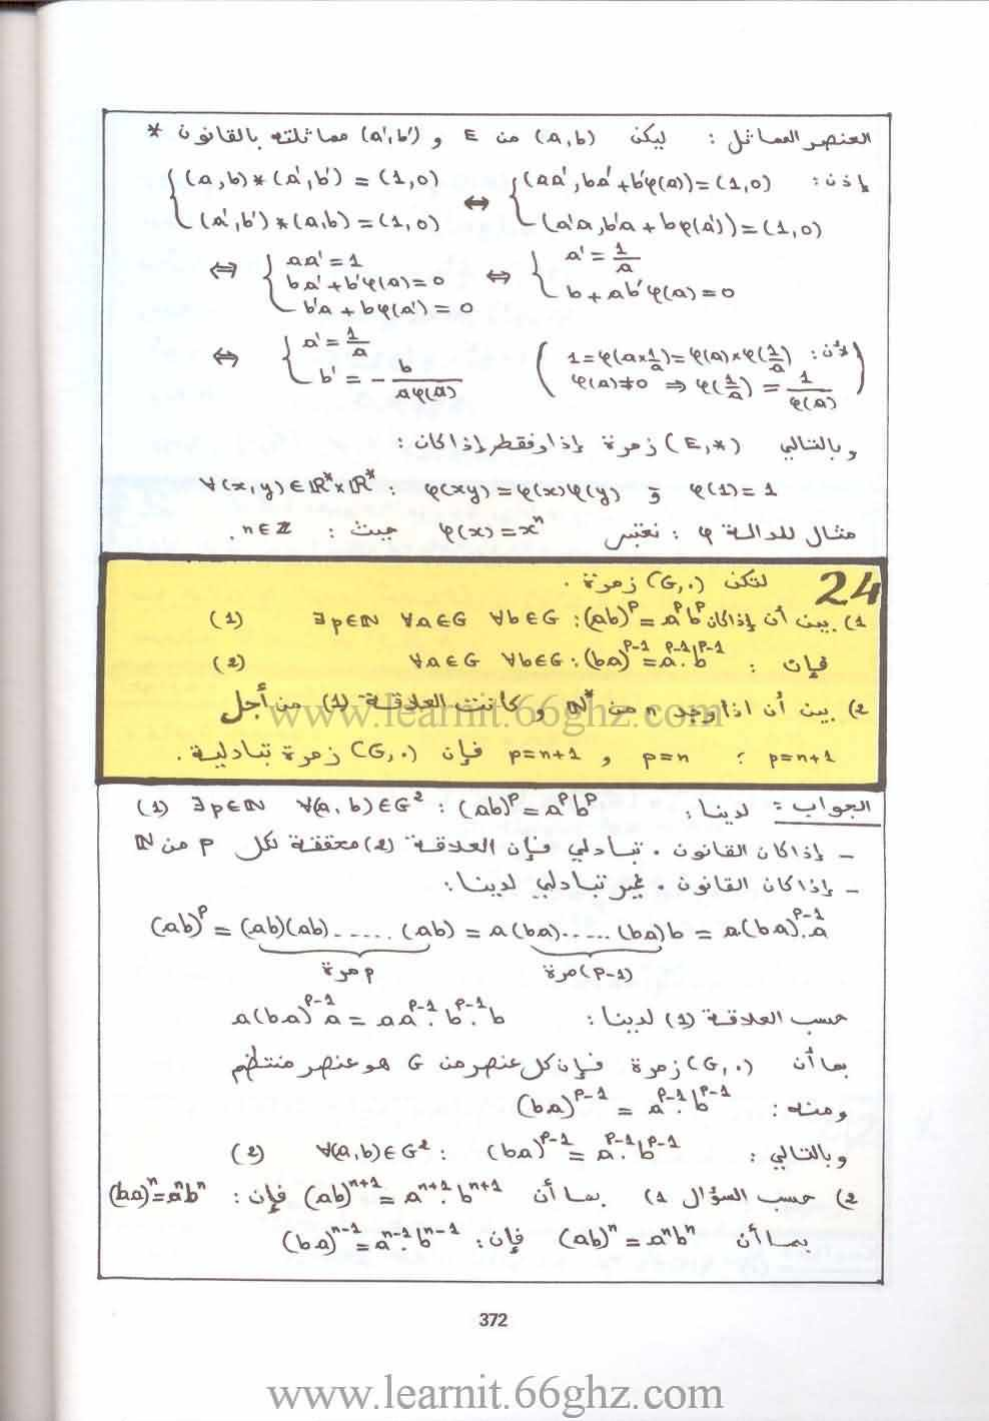 العنصر المماثل : ليكن (a,b) من E و (a',b') مماثلته بالقانون *
إذن : { (a,b)*(a',b') = (1,0) ⇔ { (aa', ba'+b'φ(a)) = (1,0)
(a',b')*(a,b) = (1,0) (a'a, b'a + bφ(a')) = (1,0)
⇔ { aa' = 1 ⇔ { a' = 1/a
ba' + b'φ(a) = 0 b + ab'φ(a) = 0
b'a + bφ(a') = 0
⇔ { a' = 1/a (لأن : 1 = φ(a×1/a) = φ(a)×φ(1/a)
b' = - b/aφ(a) φ(a)≠0 ⇒ φ(1/a) = 1/φ(a))
وبالتالي (E,*) زمرة إذا وفقط إذا كان :
∀(x,y)∈ℝ*×ℝ* : φ(xy) = φ(x)φ(y) و φ(1) = 1
مثال للدالة φ : نعتبر φ(x) = xⁿ حيث : n∈ℤ .
24 لتكن (G,.) زمرة .
1) بين أن إذا كان ∃p∈ℕ ∀a∈G ∀b∈G : (ab)^p = a^p b^p (1)
فإن : ∀a∈G ∀b∈G : (ba)^{p-1} = a^{p-1}.b^{p-1} (2)
2) بين أن اذا وجد n من ℕ* و كانت العلاقة (1) من أجل
p=n+1 ; p=n و p=n+1 فإن (G,.) زمرة تبادلية .
الجواب : لدينا : ∃p∈ℕ ∀(a,b)∈G² : (ab)^p = a^p b^p (1)
- إذا كان القانون . تبادلي فإن العلاقة (2) محققة لكل p من ℕ
- إذا كان القانون . غير تبادلي لدينا :
(ab)^p = (ab)(ab)......(ab) = a(ba).....(ba)b = a(ba)^{p-1}.a
p مرة (p-1) مرة
حسب العلاقة (1) لدينا : a(ba)^{p-1}a = aa^{p-1}.b^{p-1}.b
بما أن (G,.) زمرة فإن كل عنصر من G هو عنصر منتظم
ومنه : (ba)^{p-1} = a^{p-1}.b^{p-1}
وبالتالي : ∀(a,b)∈G² : (ba)^{p-1} = a^{p-1}.b^{p-1} (2)
2) حسب السؤال 1) بما أن (ab)^{n+1} = a^{n+1}.b^{n+1} فإن : (ba)^n = a^n b^n
بما أن (ab)^n = a^n b^n فإن : (ba)^{n-1} = a^{n-1}.b^{n-1}
372
www.learnit.66ghz.com
www.learnit.66ghz.com